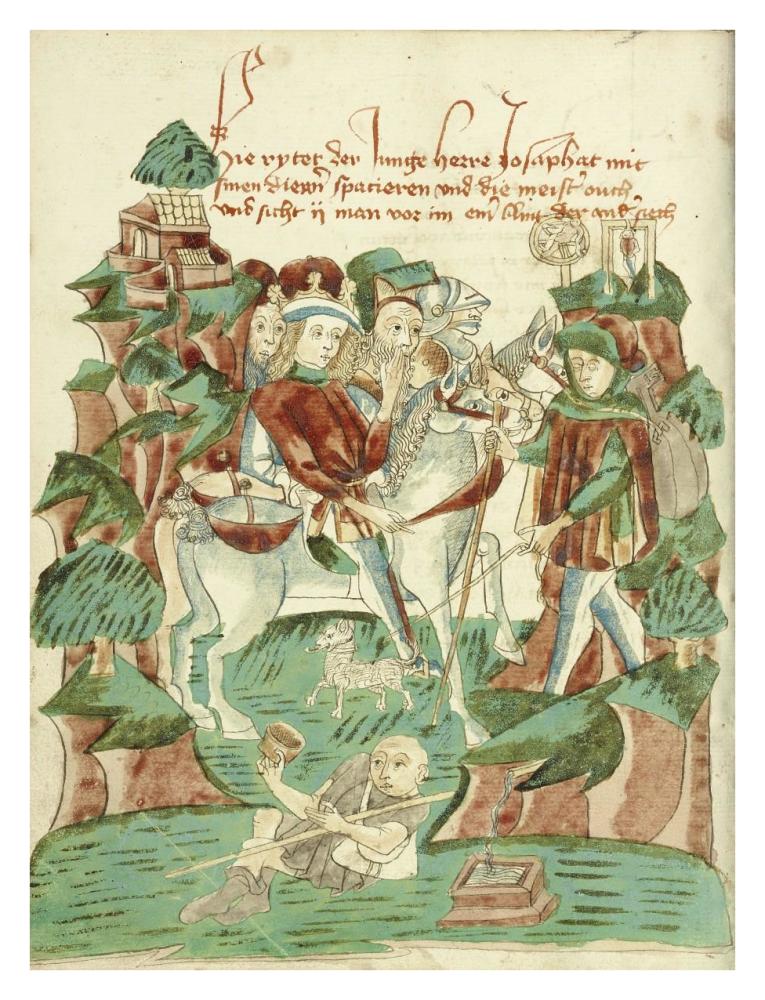 Hie rytet der Junge herre Josaphat mit
sinen diern spacieren vnd die meist ouch
vnd sicht ij man vor im ein blint der and siech